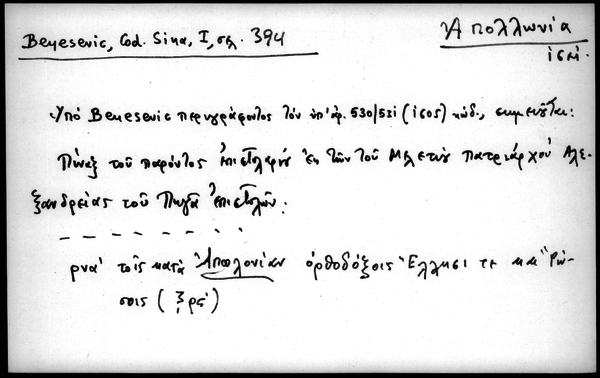 Beneševic, Cod. Sina, I, σελ. 394
Ἀπολλωνία
Ὑπὸ Beneševic περιγράφοντος τὸν ὑπ' ἀρ. 530/531 (1605) κώδ., σημειοῦται:
Πίναξ τοῦ παρόντος ἐπιστολαρίου ἐκ τῶν τοῦ Μελετίου πατριάρχου Ἀλε-
ξανδρείας τοῦ Πηγᾶ ἐπιστολῶν:
ρνα' τοῖς κατὰ Ἀπολονίαν ὀρθοδόξοις Ἕλλησι τε καὶ Ῥώ-
σοις